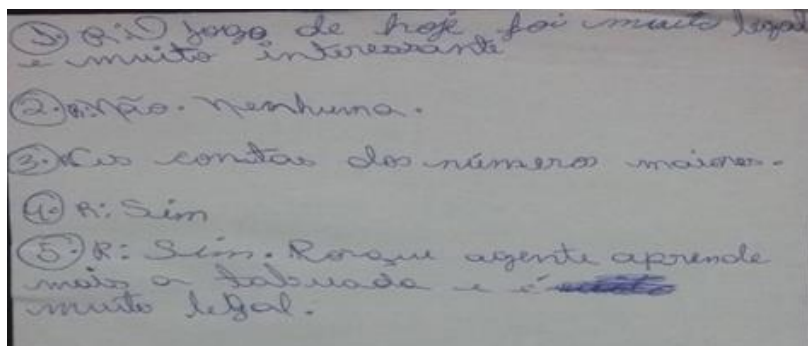 1. R: O jogo de hoje foi muito legal
e muito interessante
2. R: Não. Nenhuma.
3. R: As contas dos números maiores.
4. R: Sim
5. R: Sim. Porque agente aprende
mais a tabuada e é
muito legal.